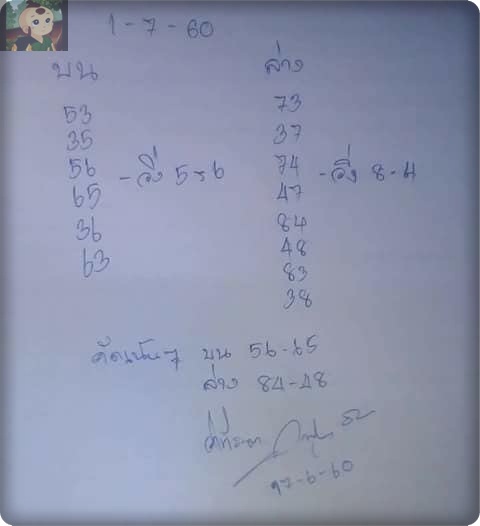 1-7-60
บน ล่าง
53 73
35 37
56 74
65 - วิ่ง 5-6 47 - วิ่ง 8-4
36 84
63 48
83
38
คัดเน้นๆ บน 56-65
ล่าง 84-48
17-6-60